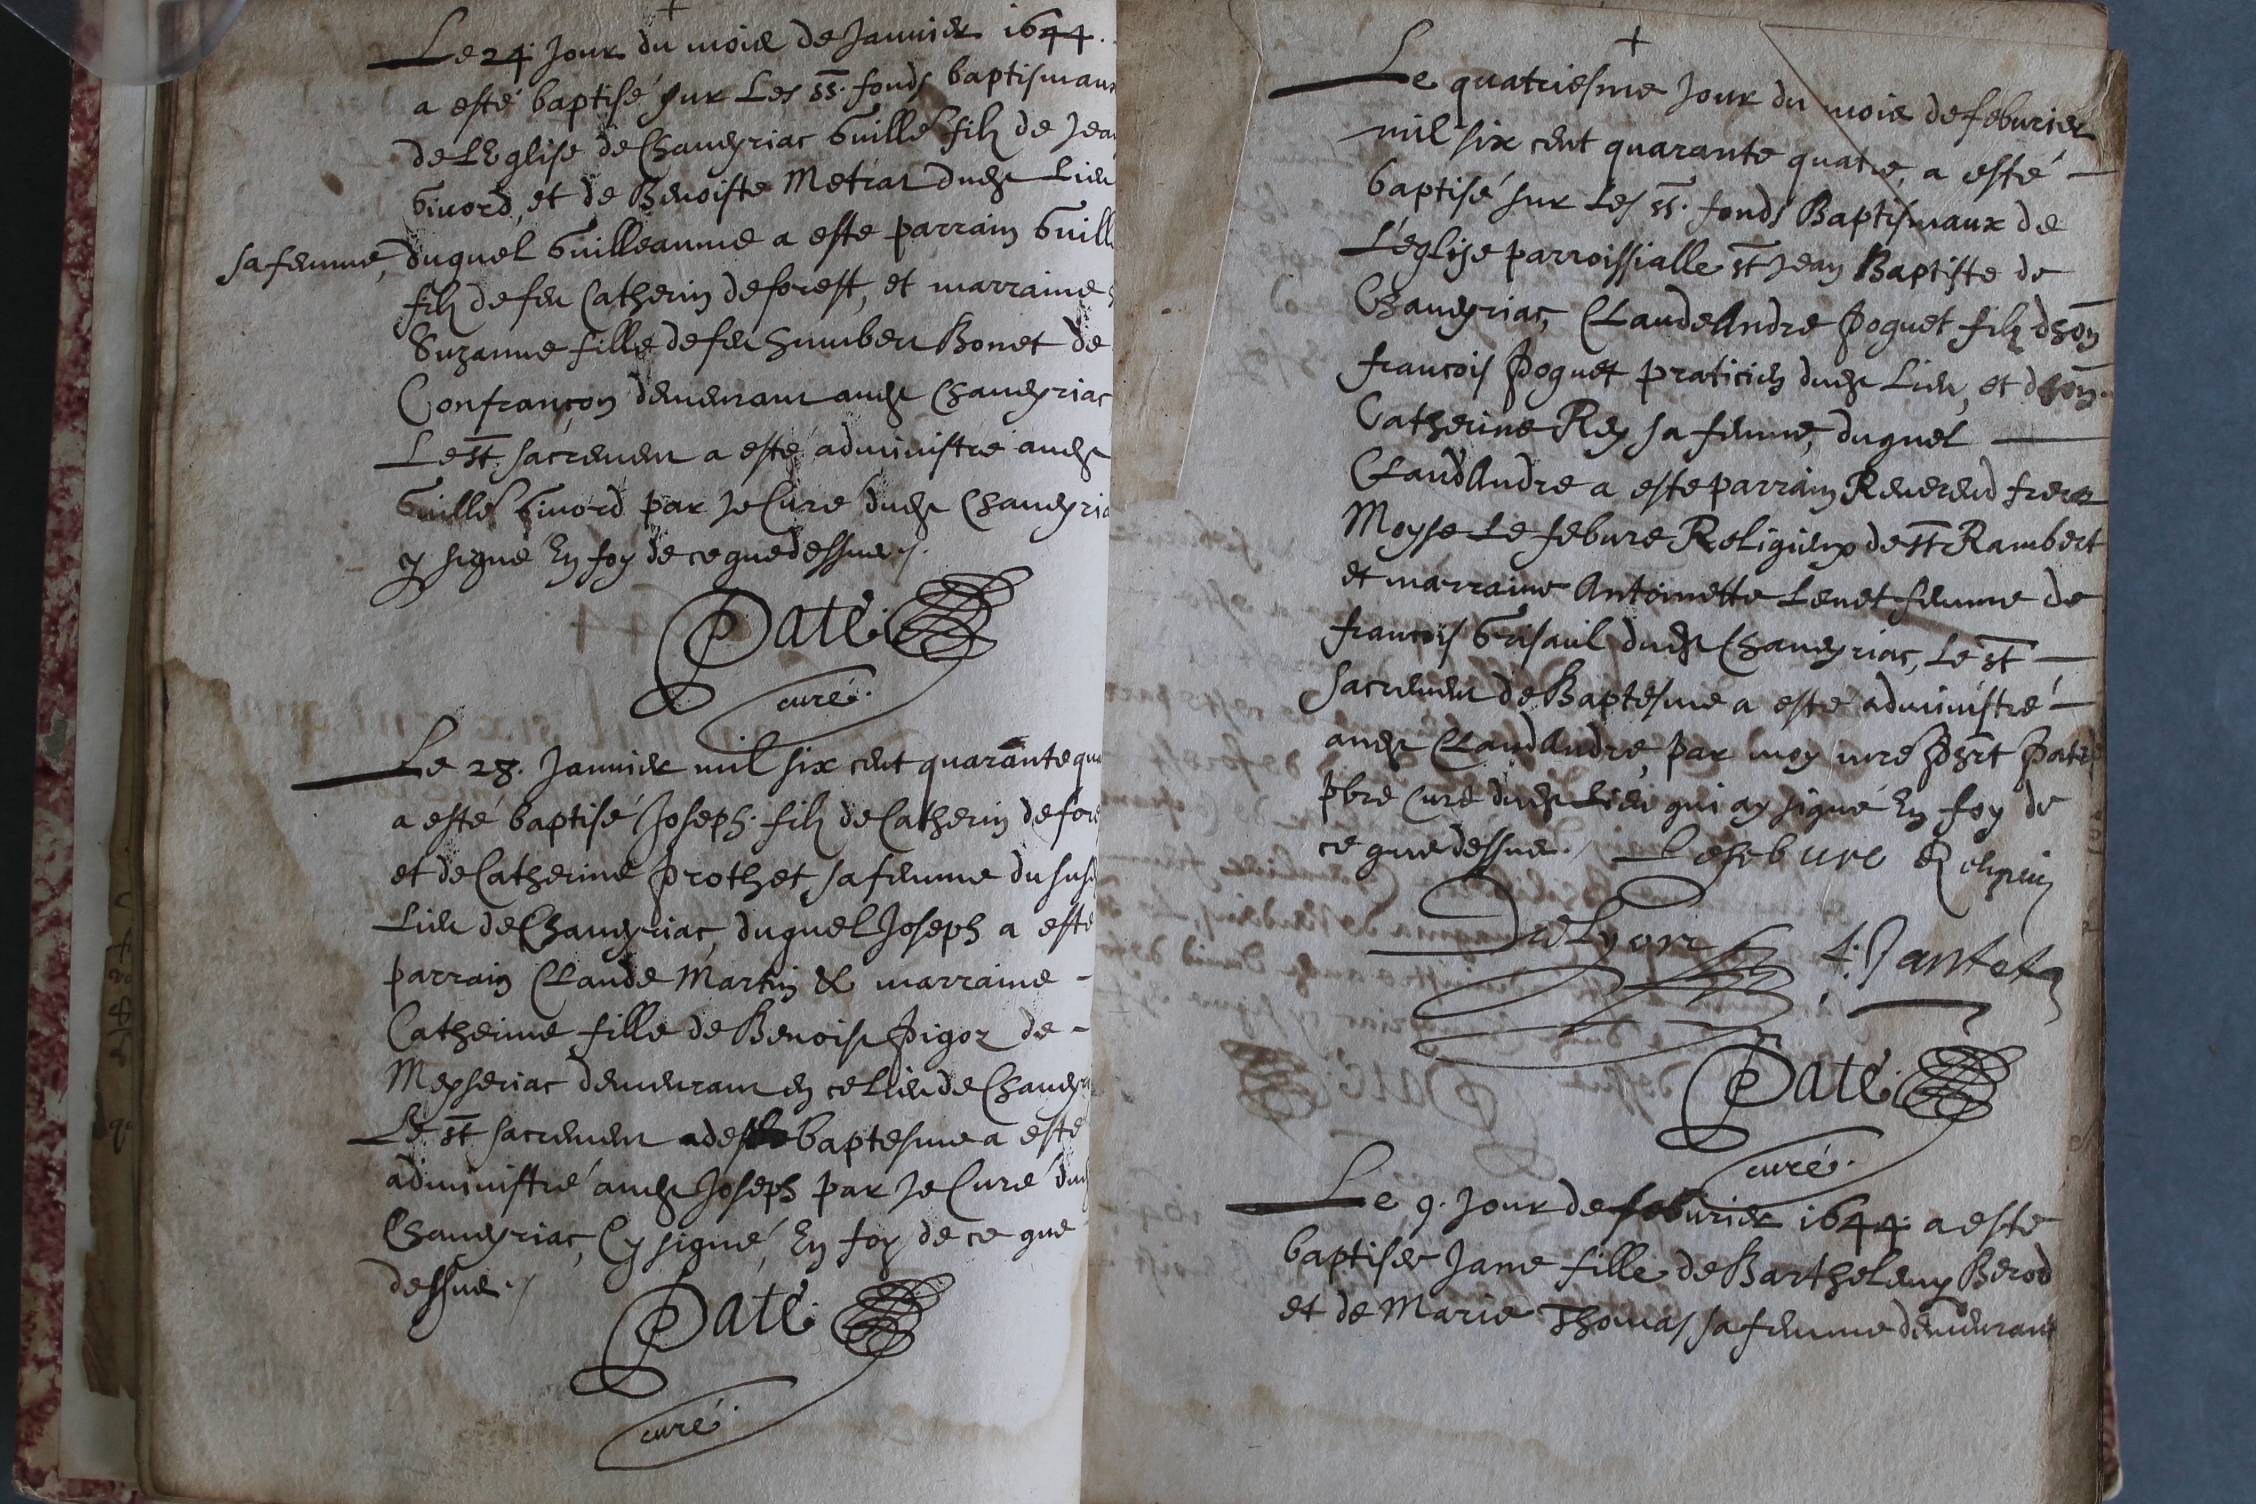 Le 24. Jour du mois de Januier 1644.
a esté baptisé sur Les SS. fonds baptismaux
de LEglise de Chaueyriac Guille filz de Jean
Giuord, et de Benoiste Metrat dudt Lieu
sa femme, duquel Guilleaume a este parrain Guill
filz de feu Catherin deforest, et marraine
Suzanne fille de feu humbert Bonet de
Confrançon demeurant audt Chaueyriac
Le St sacrement a esté administré audt
Guillé Giuord par Je Curé dudt Chaueyria
cy signé En foy de ce que dessus./.
Paté
curé.
Le 28. Januier mil six cent quarante qua
a esté baptisé Joseph. filz de Catherin defore
et de Catherine Prothet sa femme du susd
Lieu de Chaueyriac, duquel Joseph a esté
parrain Claude Martin & marraine -
Catherine fille de Benoist Pigoz de -
Meyseriac demeurant en ce Lieu de Chauey
Le St sacrement de baptesme a este
administré audt Joseph par Je Curé dud
Chaueyriac, Cy signé, En foy de ce que
dessus./
Paté
curé.
Le quatriesme Jour du mois de feburier
mil six cent quarante quatre, a esté -
baptisé sur Les SS. fonds Baptismaux de
L'église parroissialle St Jean Baptiste de
Chaueyriac, Claude Andre Poguet filz dhon
francois Poguet praticien dudt Lieu, et dhon.
Catherine Rey sa femme, duquel —
Claud Andre a este parrain Reuerend frere
Moyse Le febure Religieux de St Rambert
et marraine Antoinette Leuet femme de
francois Grisaul dudt Chaueyriac, Le St —
sacrement de Baptesme a esté administré -
audt Claud Andre, par moy mre Paté
pbre Curé dudt Lieu qui ay signé En foy de
ce que dessus./ Lefebure
DeLyon
Paté
curé.
Le 9. Jour de feburier 1644. a este
baptisée Jane fille de Barthelemy Berod
et de Marie Thomas sa femme demeurant